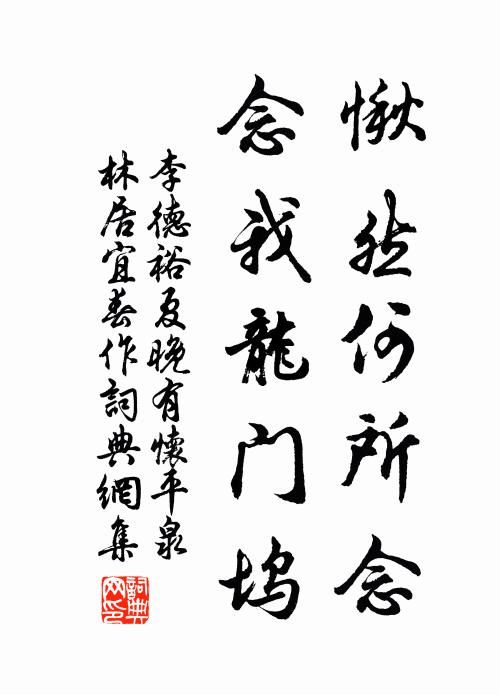 愀然何所念
念我龍門塢
李德裕夏晚有懷平泉
林居宜春作詞典網集
詞典
网印